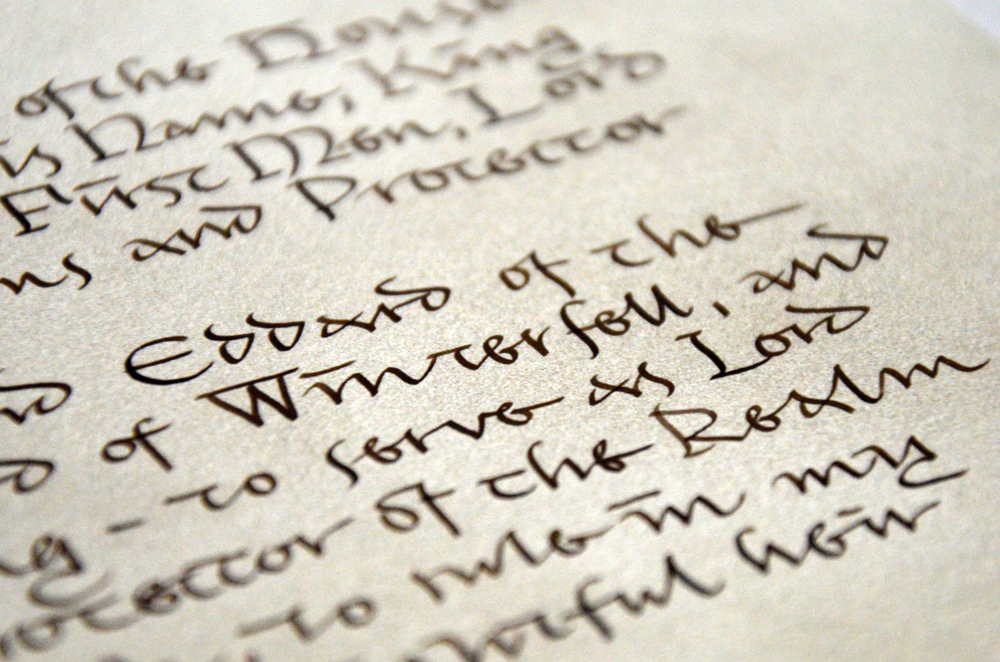 of the House
is Name, King
First Men, Lord
ns and Protector
d Eddard of the
d of Winterfell, and
ng – to serve as Lord
rotector of the Realm
to rule in my
htful heir